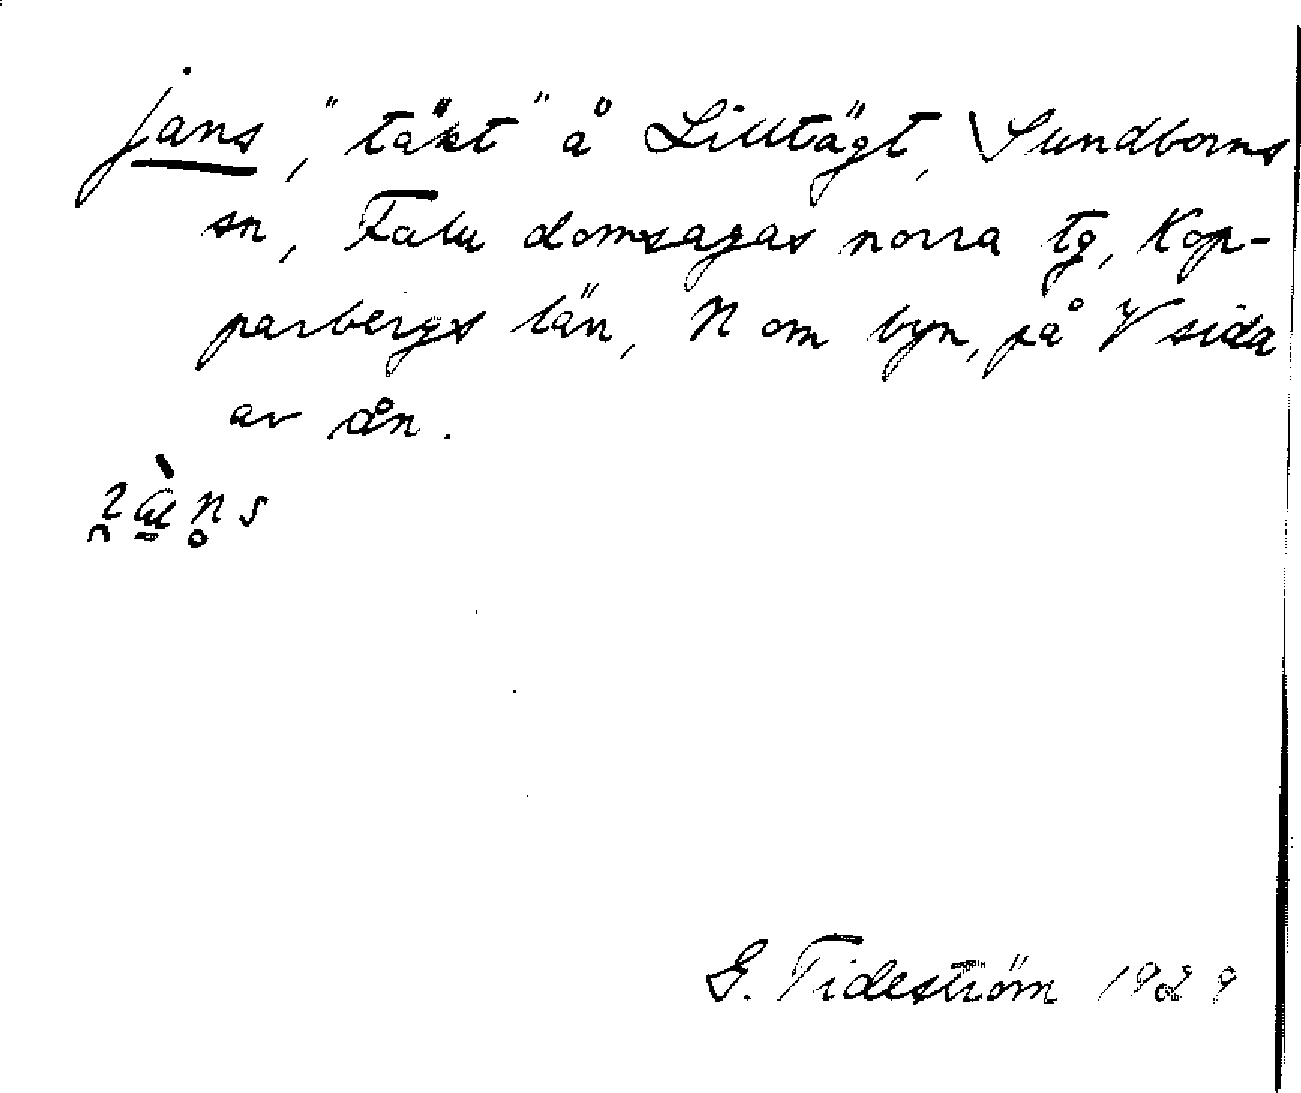 jans, "täkt" å Lilltägt, Sundborns
sn, Falu domsagas norra tg, Kop-
parbergs län, N om byn, på V sida
av ån.
G. Tideström 1929